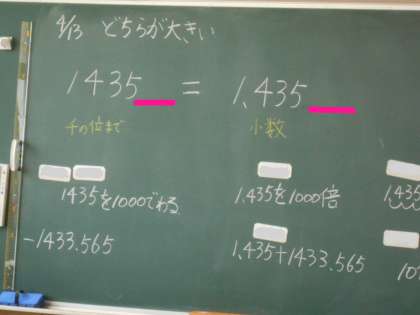 4/13 どちらが大きい
1435 = 1.435
千の位まで 小数
1435を1000でわる 1.435を1000倍 1.435
-1433.565 1.435+1433.565 10